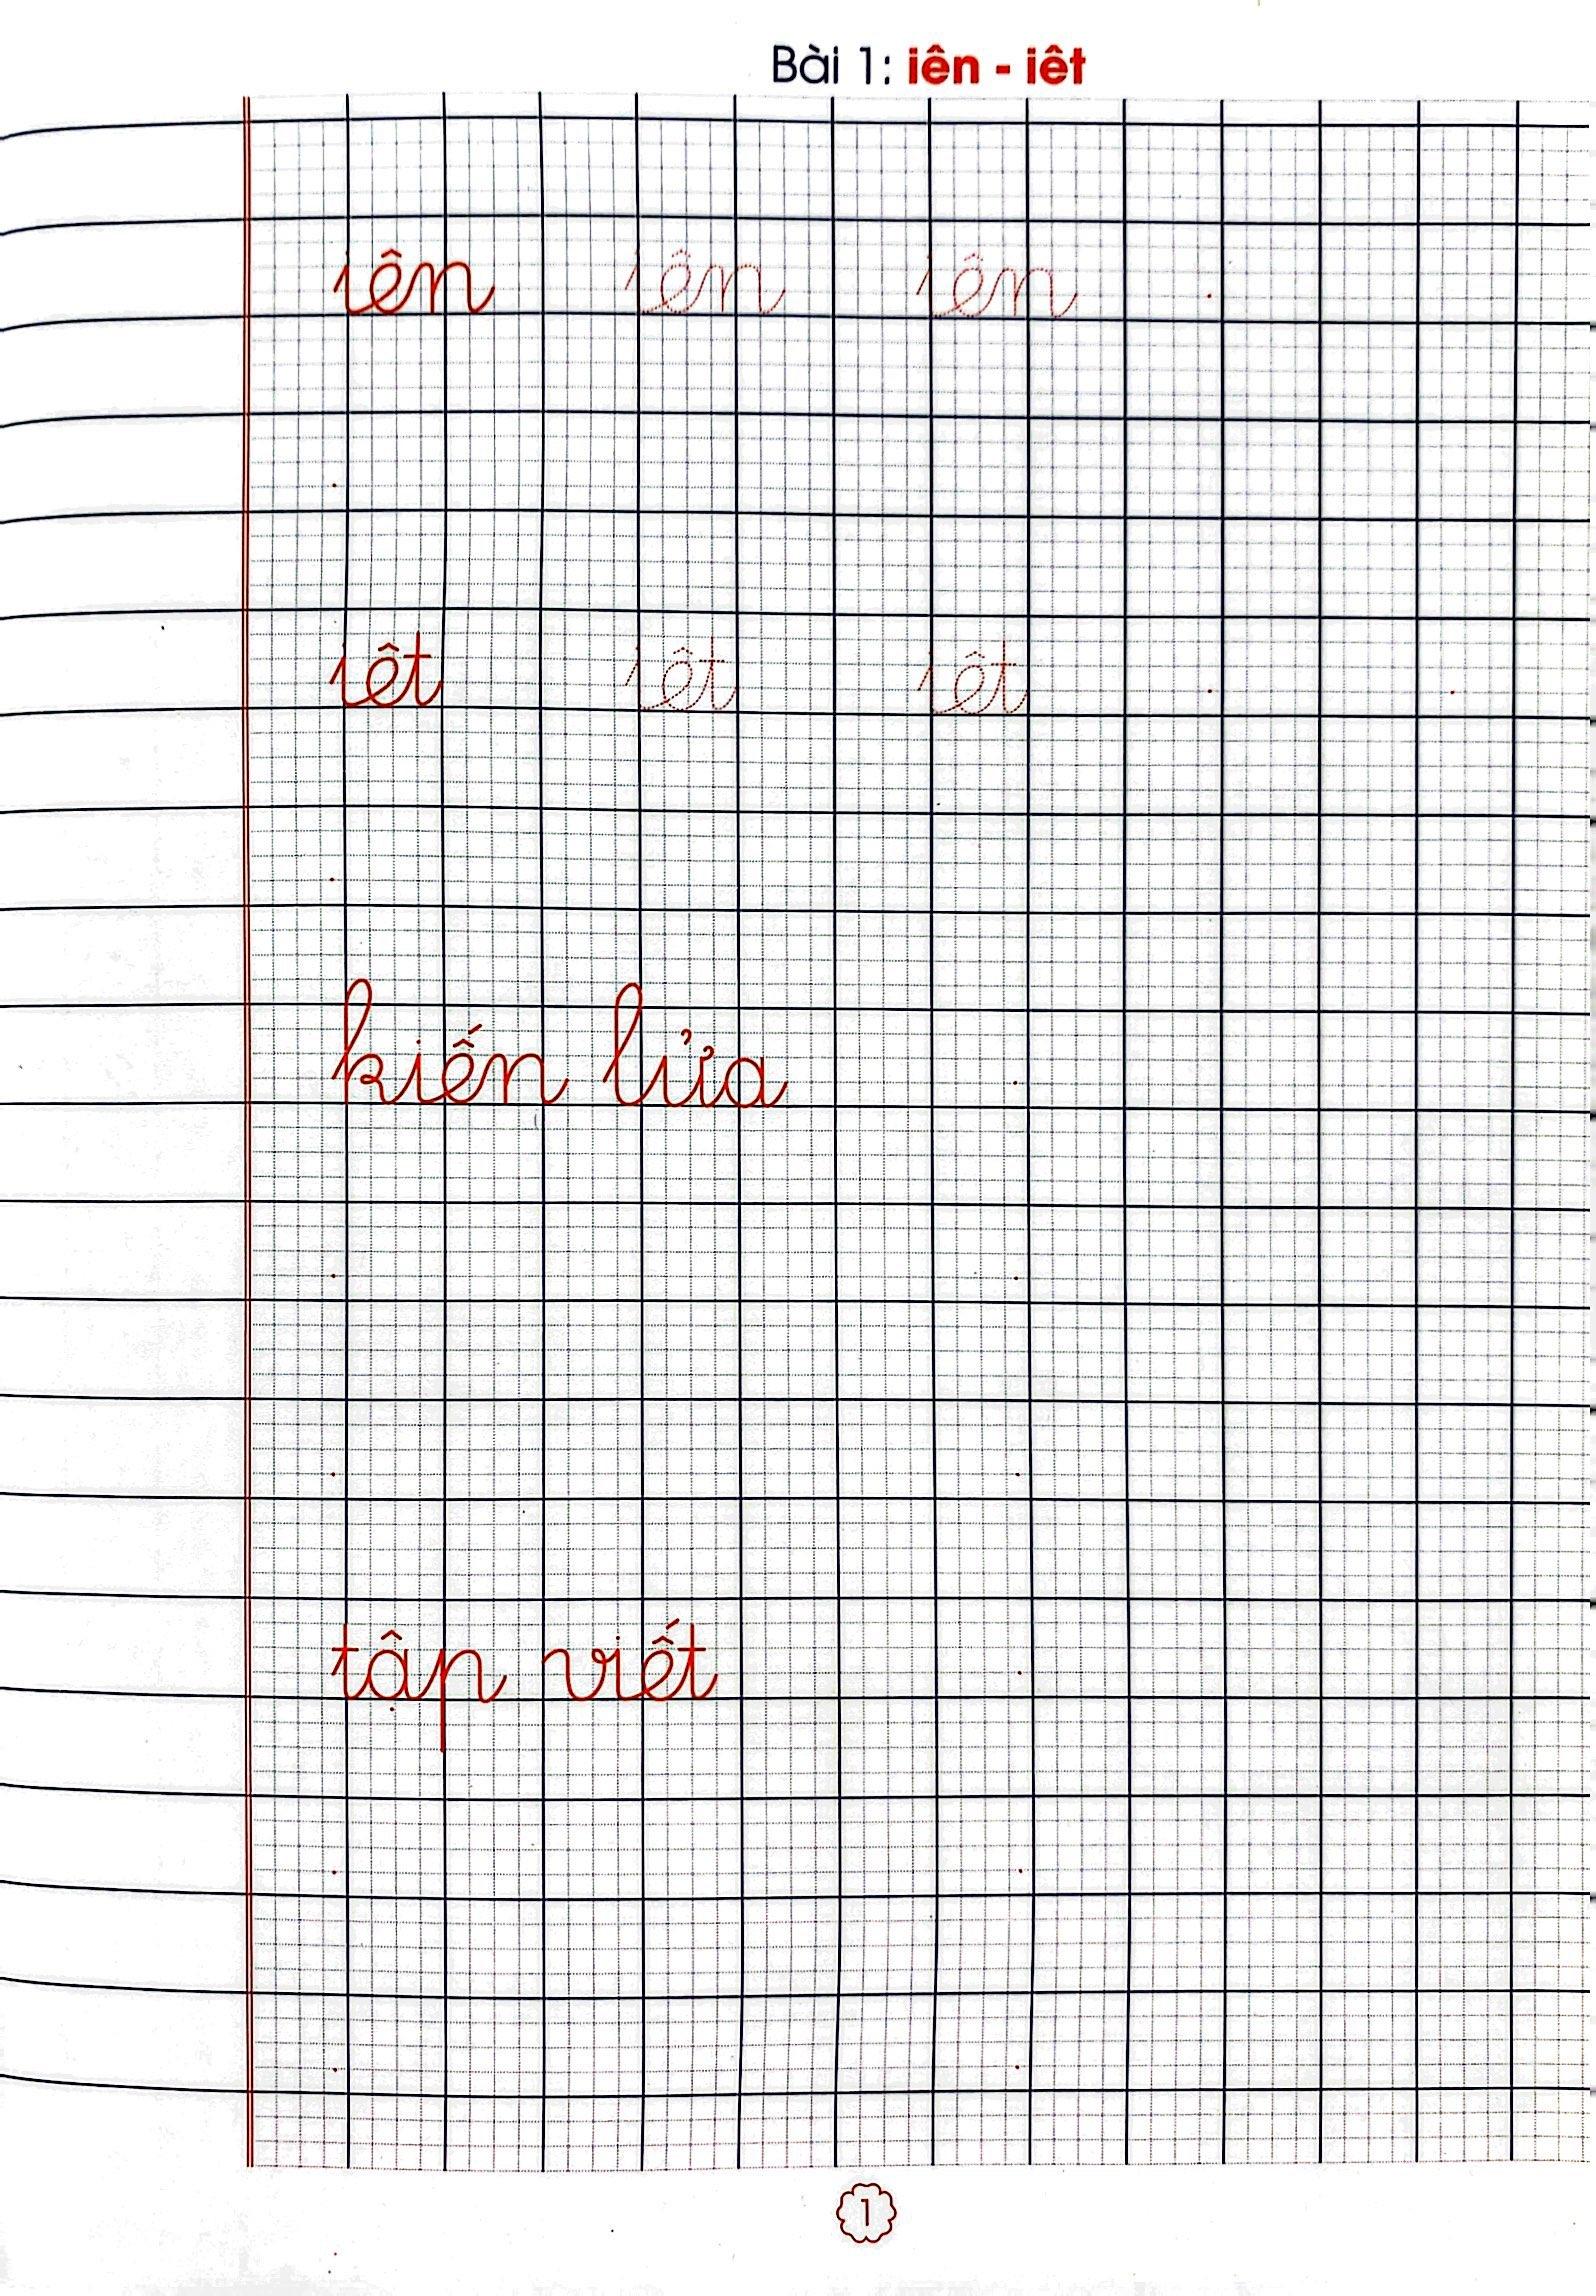 Bài 1: iên - iêt
iên iên iên
iêt iêt iêt
kiến lửa
tập viết
1